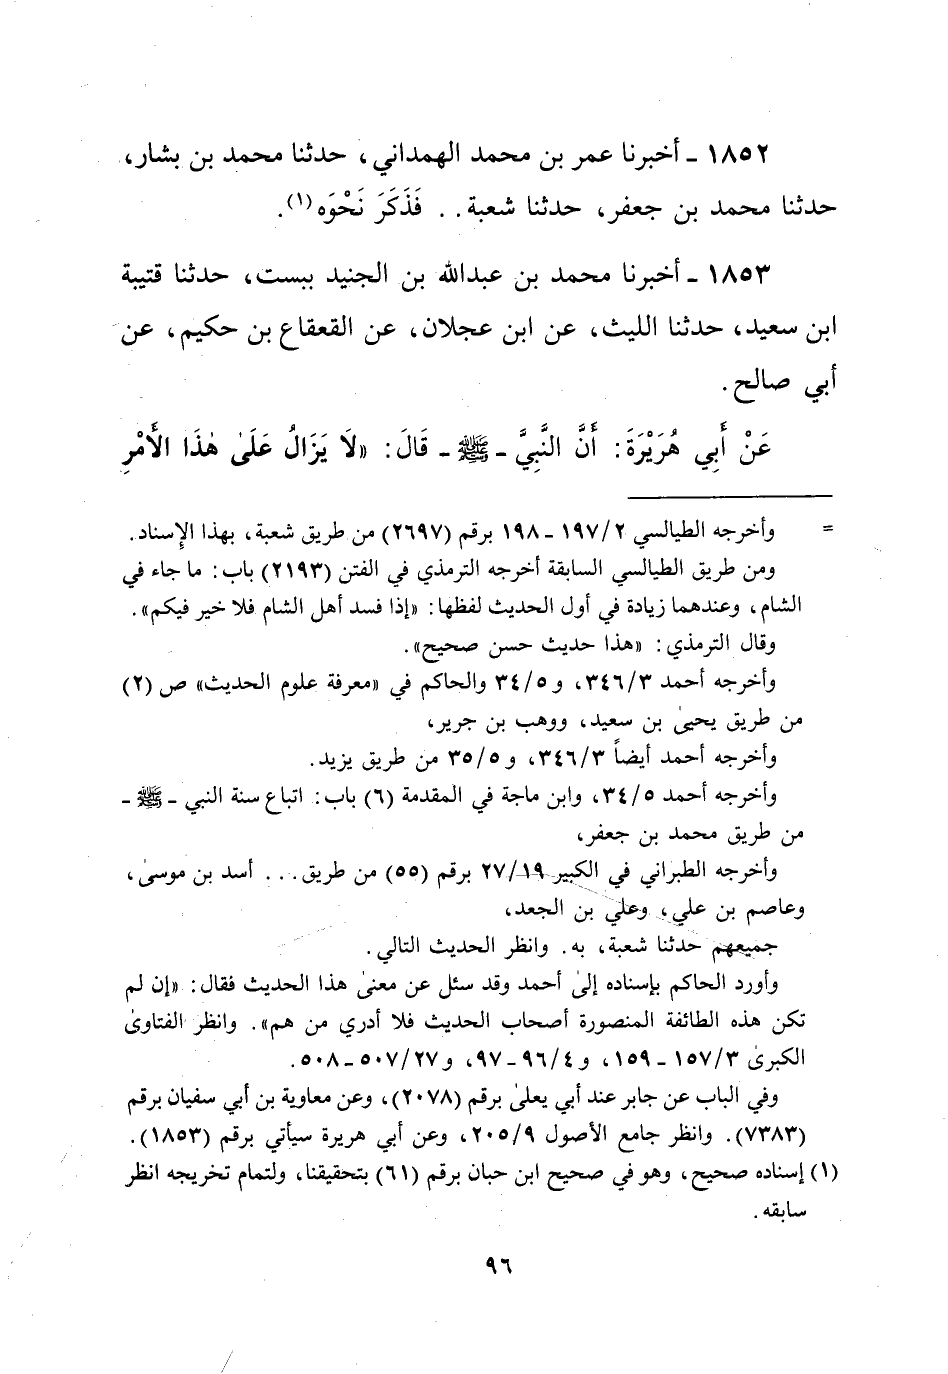 ١٨٥٢ ـ أخبرنا عمر بن محمد الهمداني، حدثنا محمد بن بشار،
حدثنا محمد بن جعفر، حدثنا شعبة.. فَذَكَرَ نَحْوَه(١).
١٨٥٣ ـ أخبرنا محمد بن عبدالله بن الجنيد ببست، حدثنا قتيبة
ابن سعيد، حدثنا الليث، عن ابن عجلان، عن القعقاع بن حكيم، عن
أبي صالح.
عَنْ أَبِي هُرَيْرَةَ: أَنَّ النَّبِيَّ ـ ﷺ ـ قَالَ: «لَا يَزَالُ عَلَىٰ هٰذَا الأَمْرِ
= وأخرجه الطيالسي ١٩٧/٢ ـ ١٩٨ برقم (٢٦٩٧) من طريق شعبة، بهذا الإسناد.
ومن طريق الطيالسي السابقة أخرجه الترمذي في الفتن (٢١٩٣) باب: ما جاء في
الشام، وعندهما زيادة في أول الحديث لفظها: «إذا فسد أهل الشام فلا خير فيكم».
وقال الترمذي: «هذا حديث حسن صحيح».
وأخرجه أحمد ٣٤٦/٣، و ٣٤/٥ والحاكم في «معرفة علوم الحديث» ص (٢)
من طريق يحيىٰ بن سعيد، ووهب بن جرير،
وأخرجه أحمد أيضاً ٣٤٦/٣، و ٣٥/٥ من طريق يزيد.
وأخرجه أحمد ٣٤/٥، وابن ماجة في المقدمة (٦) باب: اتباع سنة النبي ـ ﷺ ـ
من طريق محمد بن جعفر،
وأخرجه الطبراني في الكبير ٢٧/١٩ برقم (٥٥) من طريق... أسد بن موسىٰ،
وعاصم بن علي، وعلي بن الجعد،
جميعهم حدثنا شعبة، به. وانظر الحديث التالي.
وأورد الحاكم بإسناده إلىٰ أحمد وقد سئل عن معنىٰ هذا الحديث فقال: «إن لم
تكن هذه الطائفة المنصورة أصحاب الحديث فلا أدري من هم». وانظر الفتاوىٰ
الكبرىٰ ١٥٧/٣ ـ ١٥٩، و ٩٦/٤ ـ ٩٧، و ٥٠٧/٢٧ ـ ٥٠٨.
وفي الباب عن جابر عند أبي يعلىٰ برقم (٢٠٧٨)، وعن معاوية بن أبي سفيان برقم
(٧٣٨٣). وانظر جامع الأصول ٢٠٥/٩، وعن أبي هريرة سيأتي برقم (١٨٥٣).
(١) إسناده صحيح، وهو في صحيح ابن حبان برقم (٦١) بتحقيقنا، ولتمام تخريجه انظر
سابقه.
٩٦